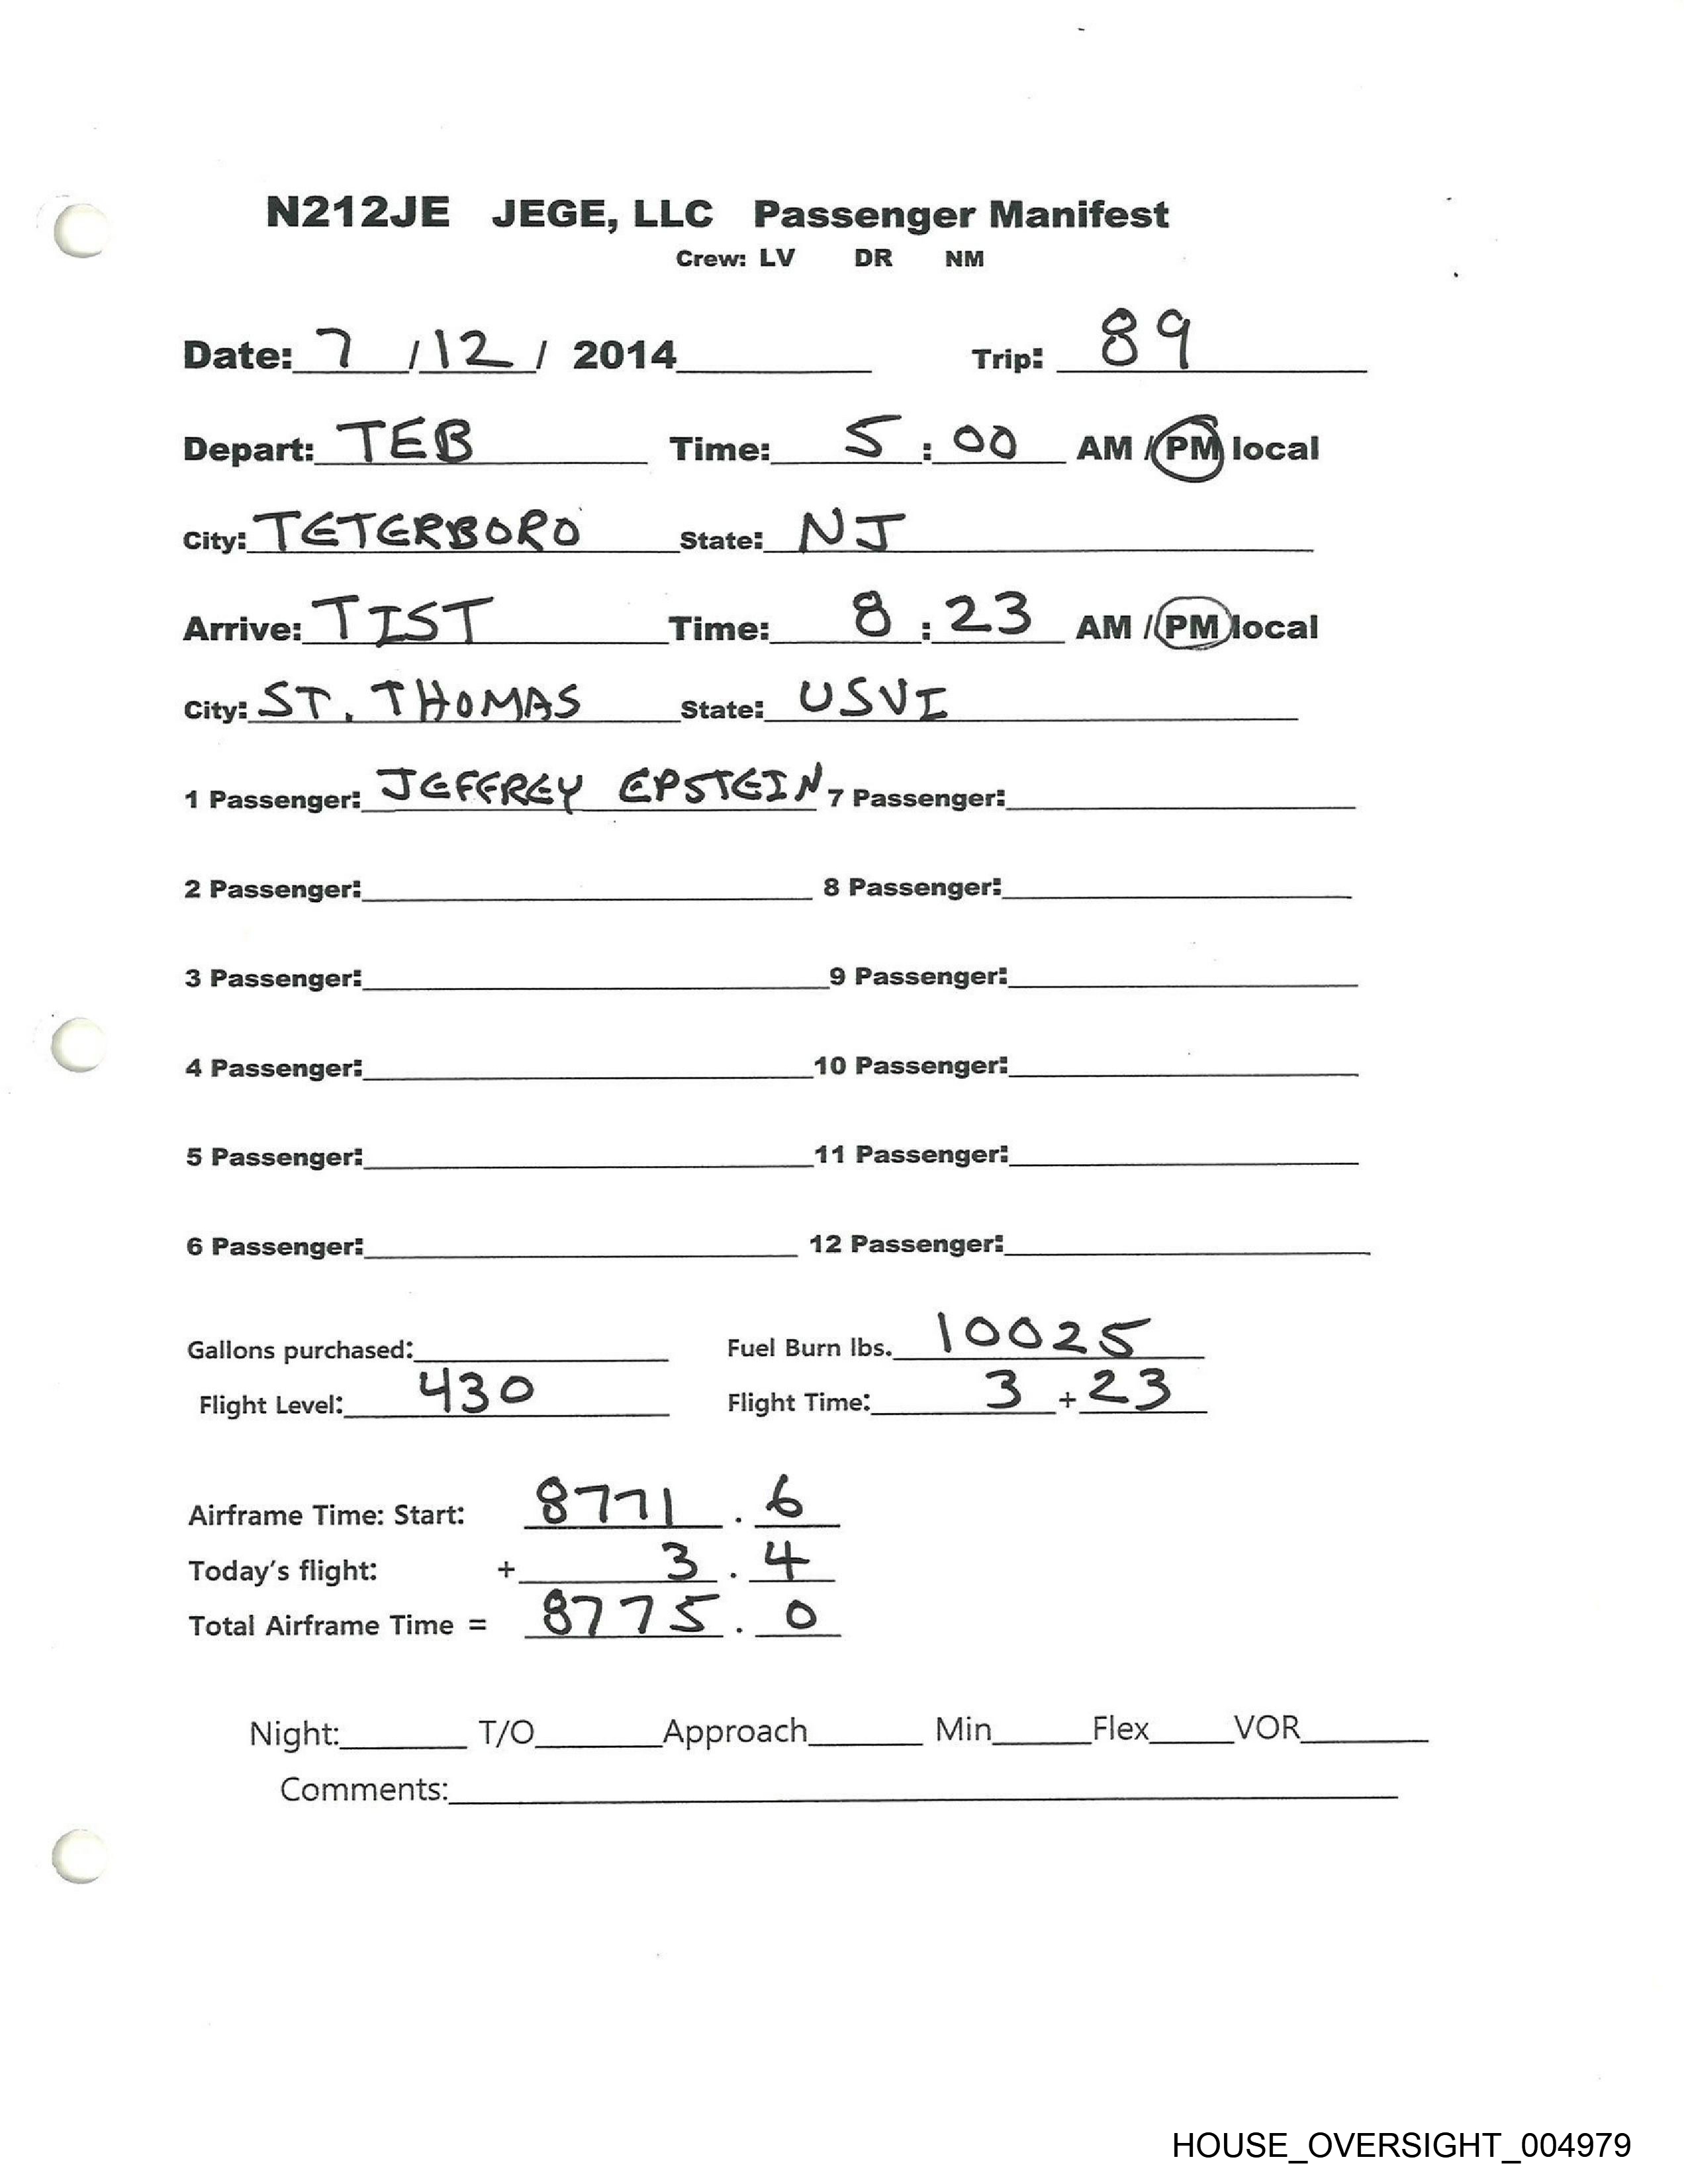 N212JE JEGE, LLC Passenger Manifest
Crew: LV DR NM
Date: 7 / 12 / 2014 Trip: 89
Depart: TEB Time: 5 : 00 AM / PM local
City: TETERBORO State: NJ
Arrive: TIST Time: 8 : 23 AM / PM local
City: ST. THOMAS State: USVI
1 Passenger: JEFFREY EPSTEIN 7 Passenger:
2 Passenger: 8 Passenger:
3 Passenger: 9 Passenger:
4 Passenger: 10 Passenger:
5 Passenger: 11 Passenger:
6 Passenger: 12 Passenger:
Gallons purchased: Fuel Burn lbs. 10025
Flight Level: 430 Flight Time: 3 + 23
Airframe Time: Start: 8771 . 6
Today's flight: + 3 . 4
Total Airframe Time = 8775 . 0
Night: T/O Approach Min Flex VOR
Comments:
HOUSE_OVERSIGHT_004979